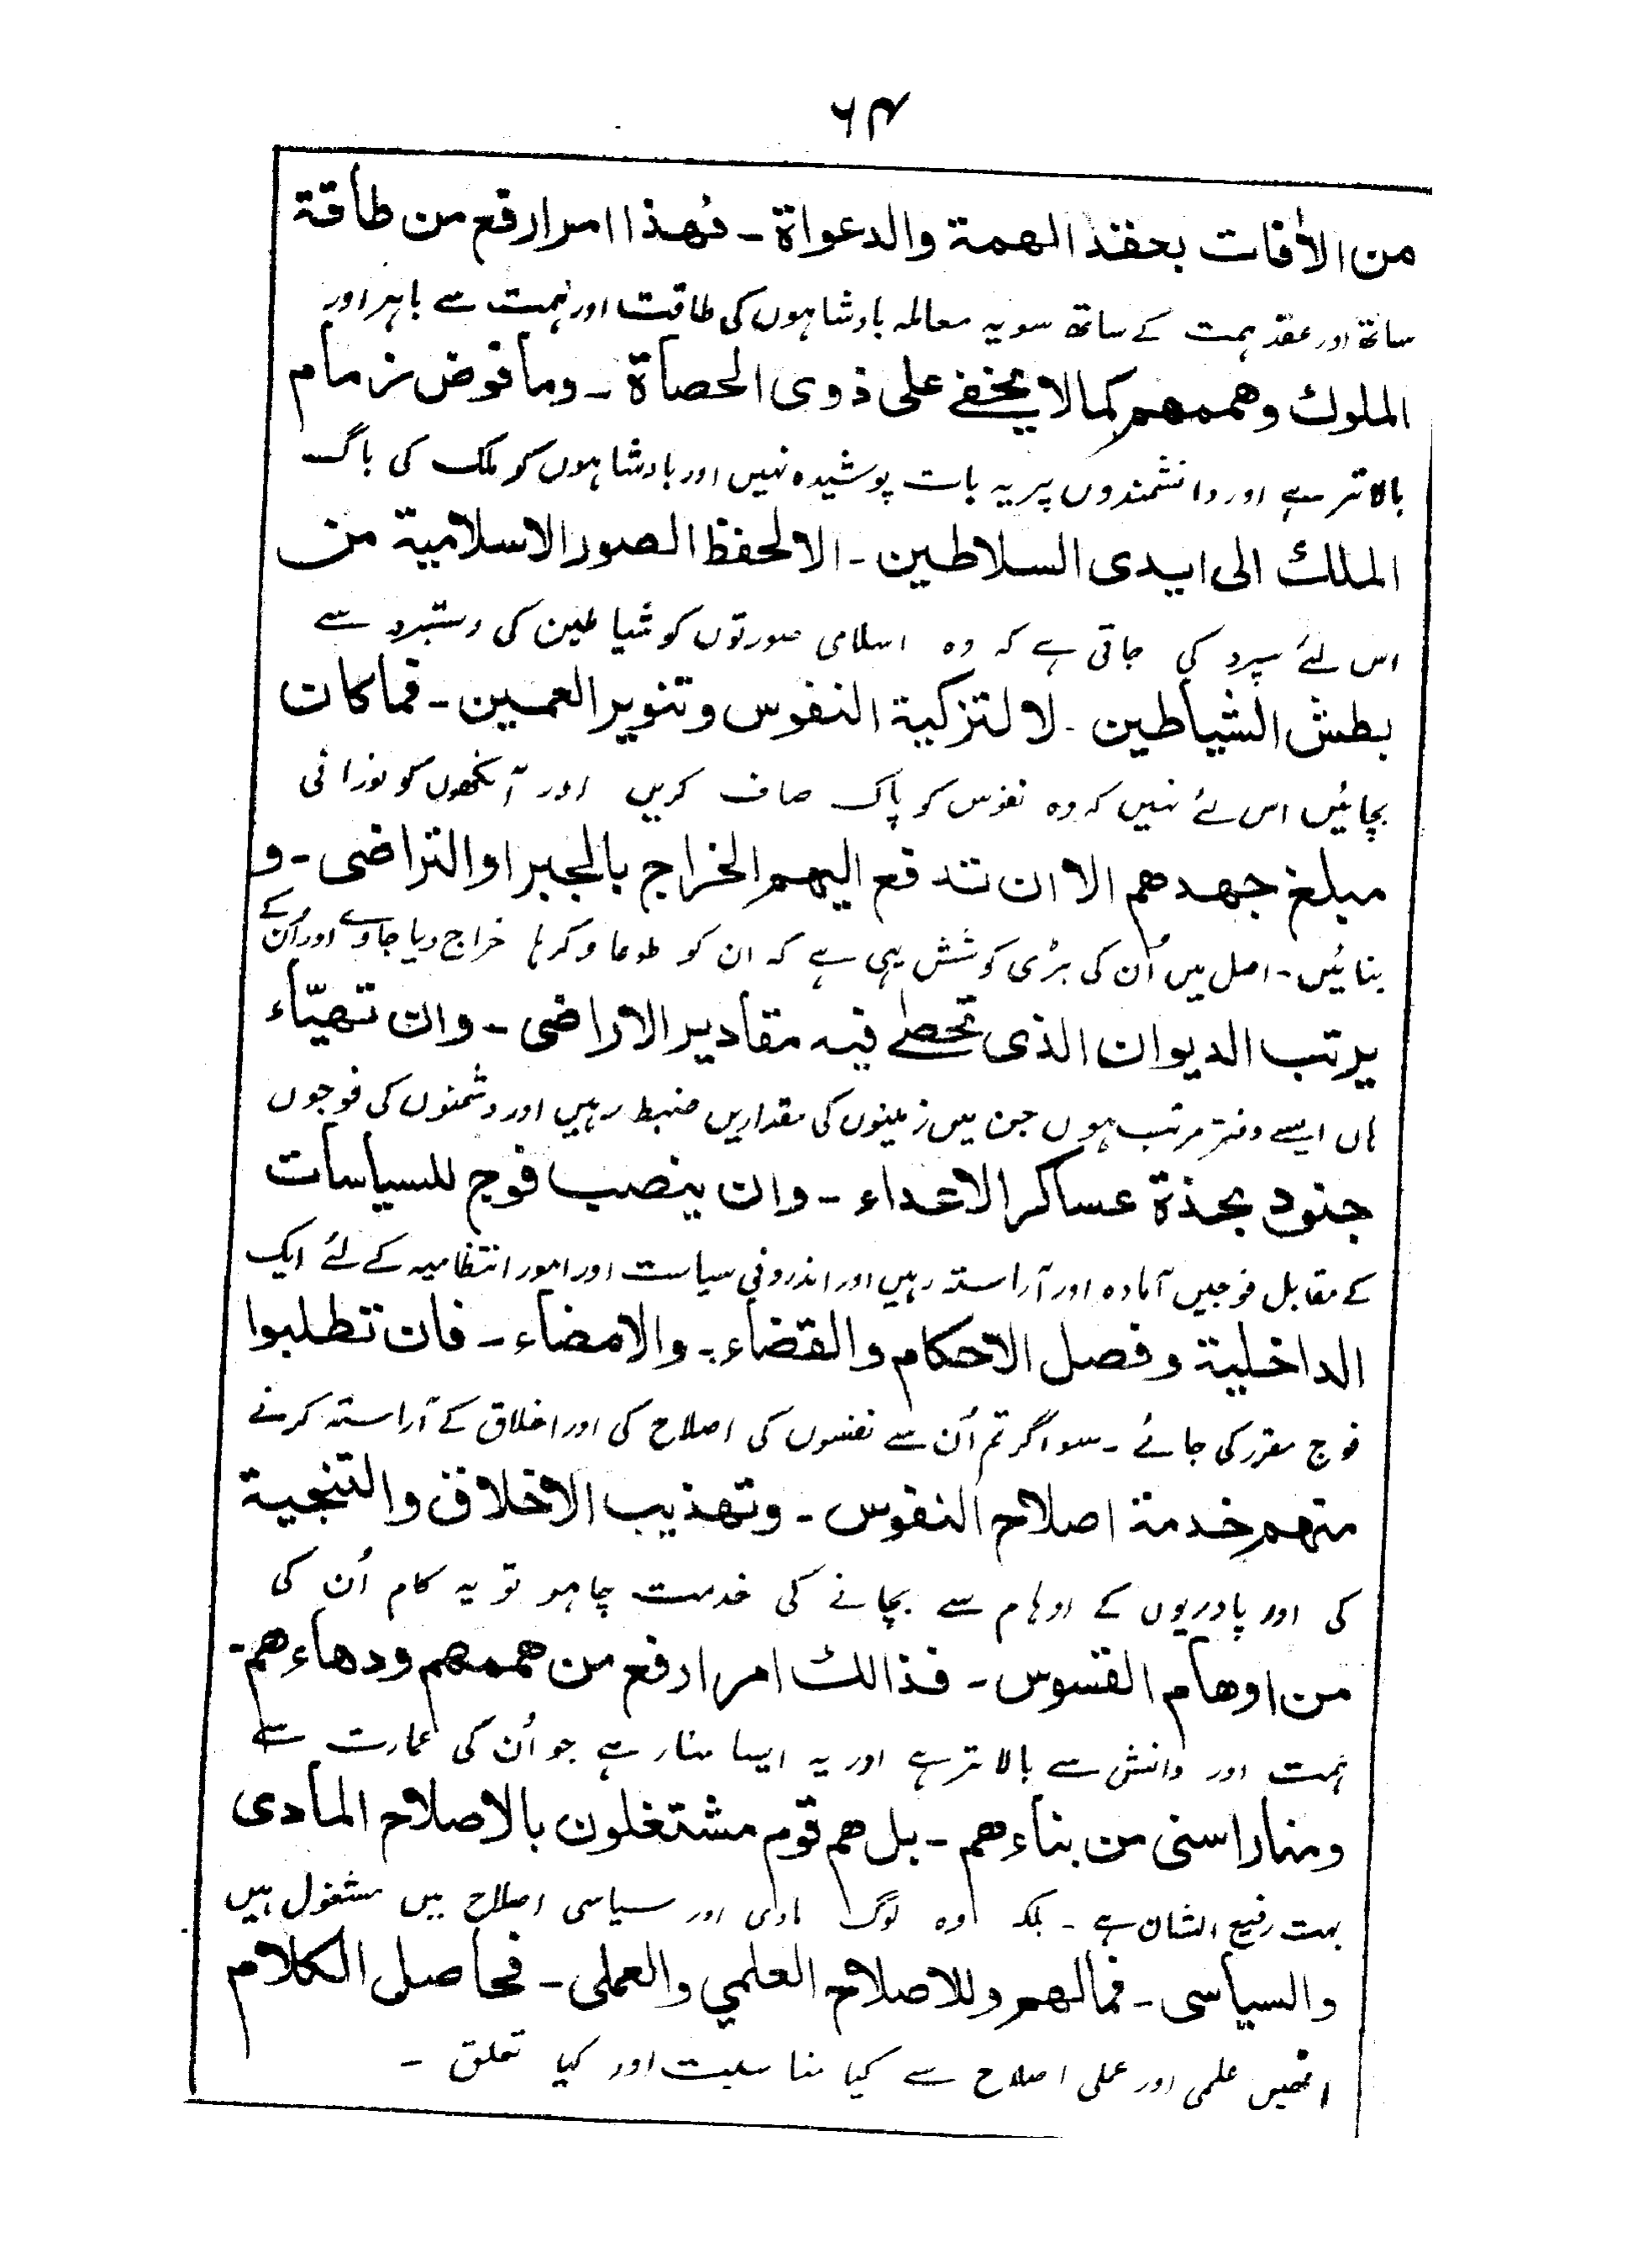 ۶۴
من الأفات بعقد الهمة والدعواة ـ فهذا امر ارفع من طاقة
ساتھ اور عقد ہمت کے ساتھ سو یہ معاملہ بادشاہوں کی طاقت اور ہمت سے باہر اور
الملوك وهممهم كما لا يخفے على ذوى الحصاة ـ وما فوض زمام
بالاتر ہے اور دانشمندوں پر یہ بات پوشیدہ نہیں اور بادشاہوں کو ملک کی باگ
الملك الى ايدى السلاطين ـ الا لحفظ الصور الاسلامية من
اس لئے سپرد کی جاتی ہے کہ وہ اسلامی صورتوں کو شیاطین کی دستبرد سے
بطش الشياطين ـ لا لتزكية النفوس وتنوير العمين ـ فما كان
بچائیں اس لئے نہیں کہ وہ نفوس کو پاک صاف کریں اور آنکھوں کو نورانی
مبلغ جهدهم الا ان تدفع اليهم الخراج بالجبر او التراضى ـ و
بنائیں ـ اصل میں اُن کی بڑی کوشش یہی ہے کہ ان کو طوعا و کرہا خراج دیا جاوے اور اُن کے
يرتب الديوان الذى تحصے فيه مقادير الاراضى ـ وان تهيّاء
ہاں ایسے دفتر مرتب ہوں جن میں زمینوں کی مقداریں ضبط رہیں اور دشمنوں کی فوجوں
جنود بحذة عساكر الاعداء ـ وان ينصب فوج للسياسات
کے مقابل فوجیں آمادہ اور آراستہ رہیں اور اندرونی سیاست اور امور انتظامیہ کے لئے ایک
الداخلية وفصل الاحكام والقضاء ـ والامضاء ـ فان تطلبوا
فوج مقرر کی جائے ـ سو اگر تم اُن سے نفسوں کی اصلاح کی اور اخلاق کے آراستہ کرنے
منهم خدمة اصلاح النفوس ـ وتهذيب الاخلاق والتنجية
کی اور پادریوں کے اوہام سے بچانے کی خدمت چاہو تو یہ کام اُن کی
من اوهام القسوس ـ فذالك امر ارفع من هممهم ودهاءهم ـ
ہمت اور دانش سے بالاتر ہے اور یہ ایسا منار ہے جو اُن کی عمارت سے
ومنار اسنى من بناءهم ـ بل هم قوم مشتغلون بالاصلاح المادى
بہت رفیع الشان ہے ـ بلکہ وہ لوگ مادی اور سیاسی اصلاح میں مشغول ہیں
والسياسى ـ فما لهم وللاصلاح العلمي والعملى ـ فحاصل الكلام
انھیں علمی اور عملی اصلاح سے کیا مناسبت اور کیا تعلق ـ